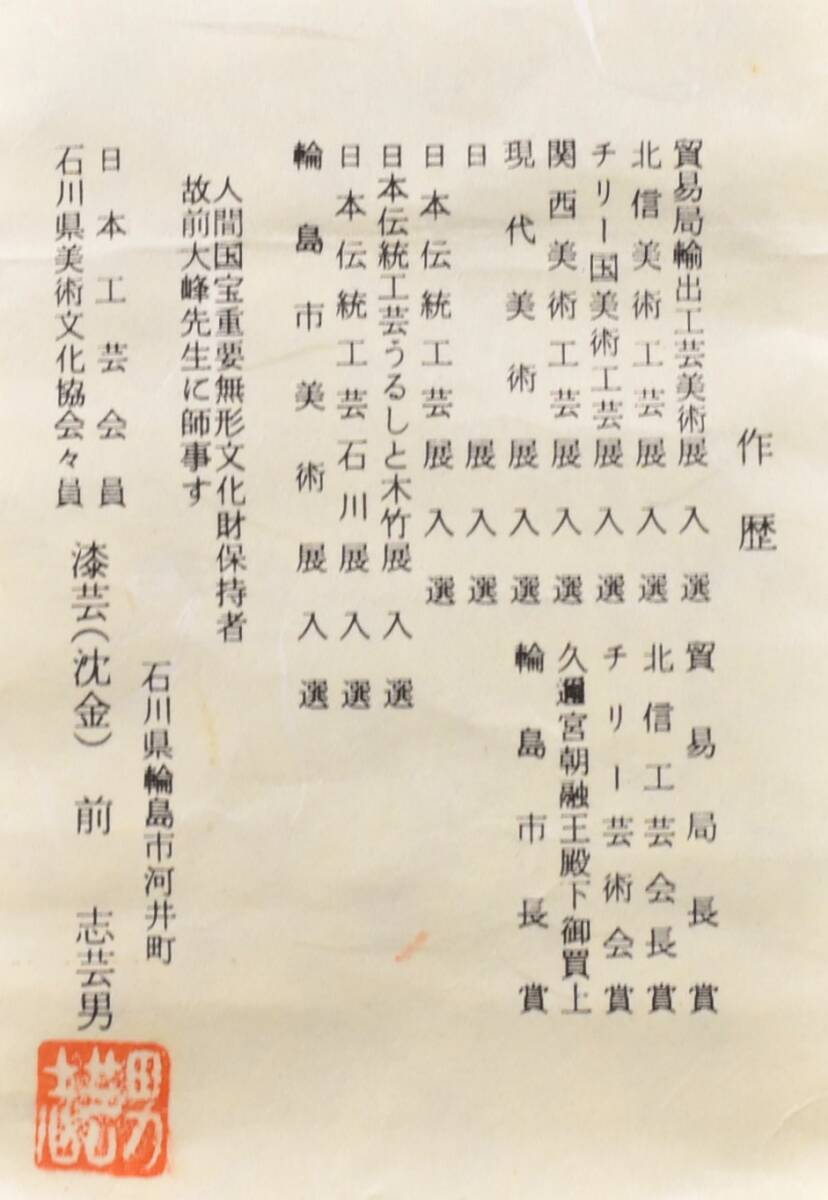 作歴
貿易局輸出工芸美術展入選 貿易局長賞
北信美術工芸展入選 北信工芸会長賞
チリー国美術工芸展入選 チリー芸術会賞
関西美術工芸展入選 久邇宮朝融王殿下御買上
現代美術展入選 輪島市長賞
日展入選
日本伝統工芸展入選
日本伝統工芸うるしと木竹展入選
日本伝統工芸石川展入選
輪島市美術展入選
人間国宝重要無形文化財保持者
故前大峰先生に師事す
石川県輪島市河井町
日本工芸会員
石川県美術文化協会々員
漆芸(沈金) 前 志芸男
志芸男